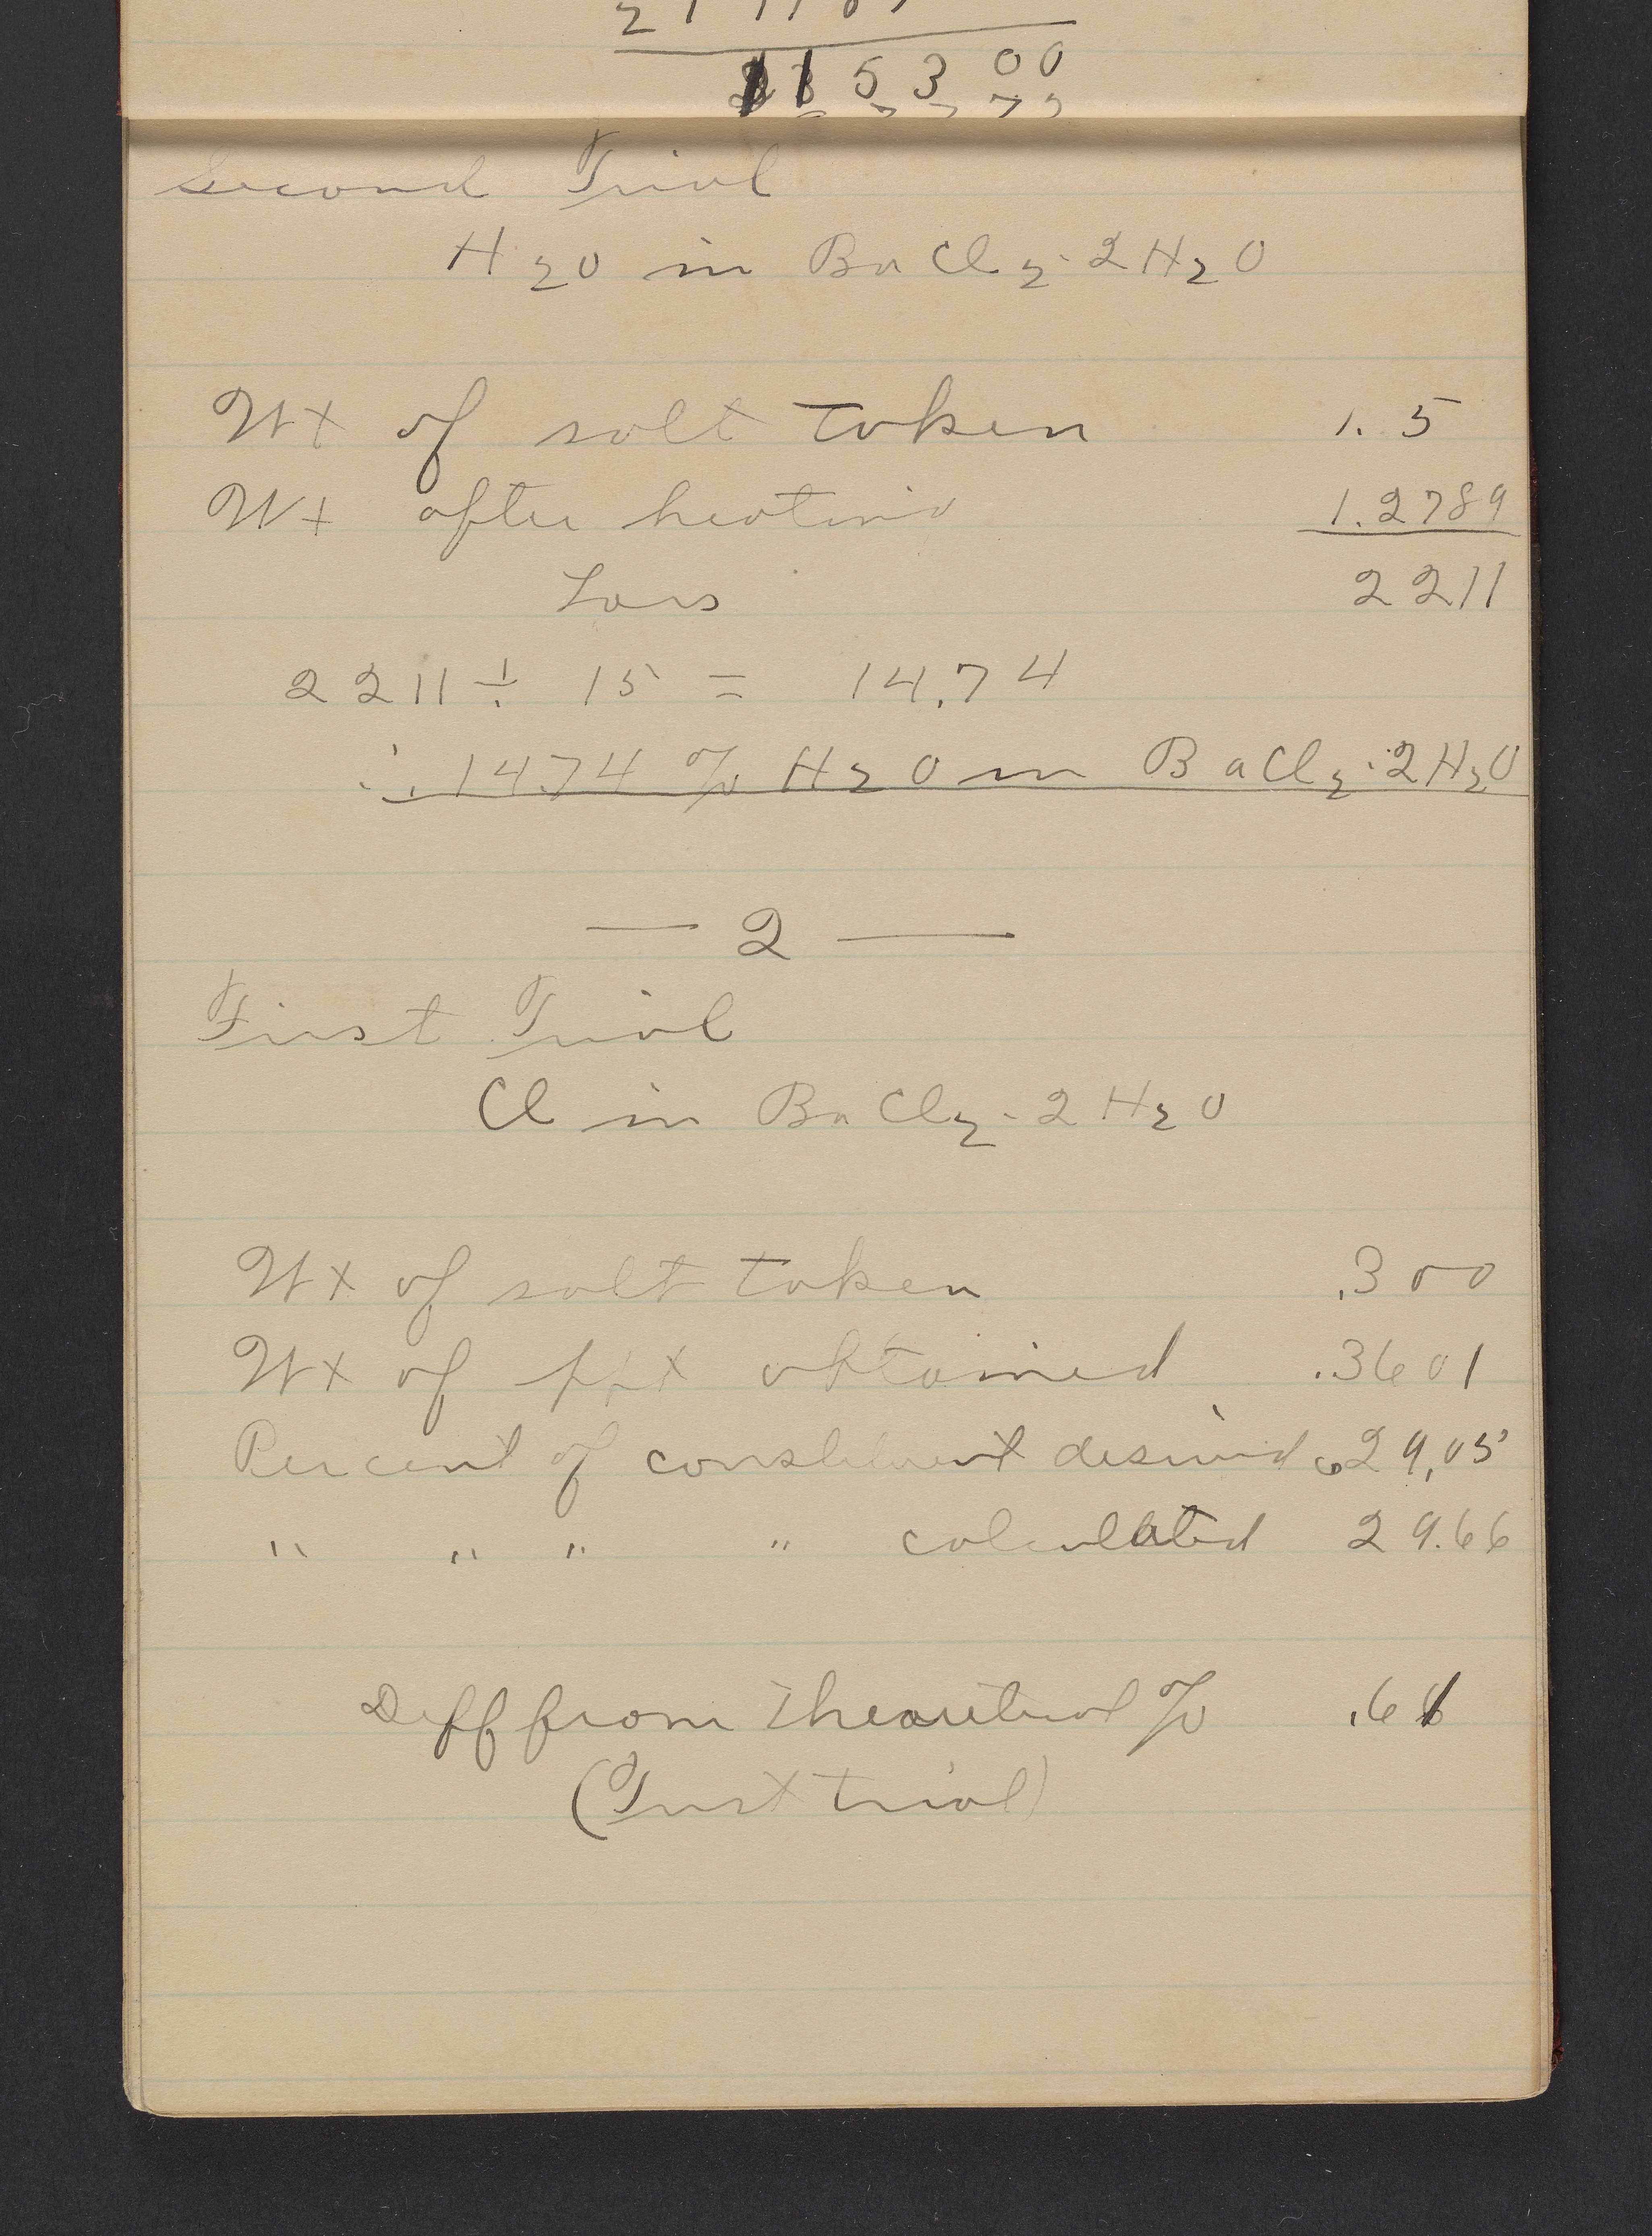 11 5 3 00
Second Trial
H2O in BaCl2·2H2O
Wt of salt taken 1.5
Wt after heating 1.2789
Loss 2211
2211 ÷ 15 = 14.74
∴ 14.74 % H2O in BaCl2·2H2O
— 2 —
First Trial
Cl in BaCl2·2H2O
Wt of salt taken .300
Wt of ppt obtained .3601
Percent of constituent desired 29.05
" " " " calculated 29.66
Diff from theoretical % .61
(First trial)